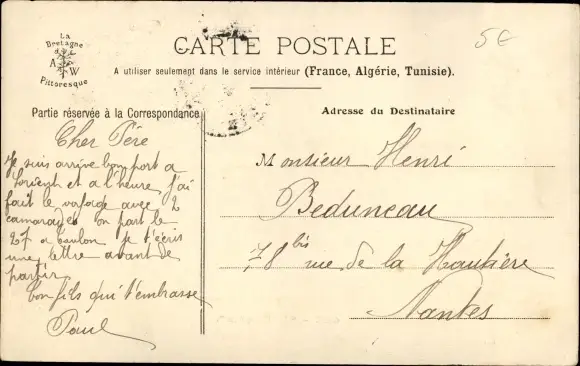 La
Bretagne
A W
Pittoresque
5€
CARTE POSTALE
A utiliser seulement dans le service intérieur (France, Algérie, Tunisie).
Partie réservée à la Correspondance
Cher Père
Je suis arrivé bon port a
Lorient et a l'heure j'ai
fait le voyage avec 2
camarades on part le
27 a toulon je t'écris
une lettre avant de
partir
ton fils qui t'embrasse
Paul
Adresse du Destinataire
Monsieur Henri
Beduneau
78 bis rue de la Hautière
Nantes